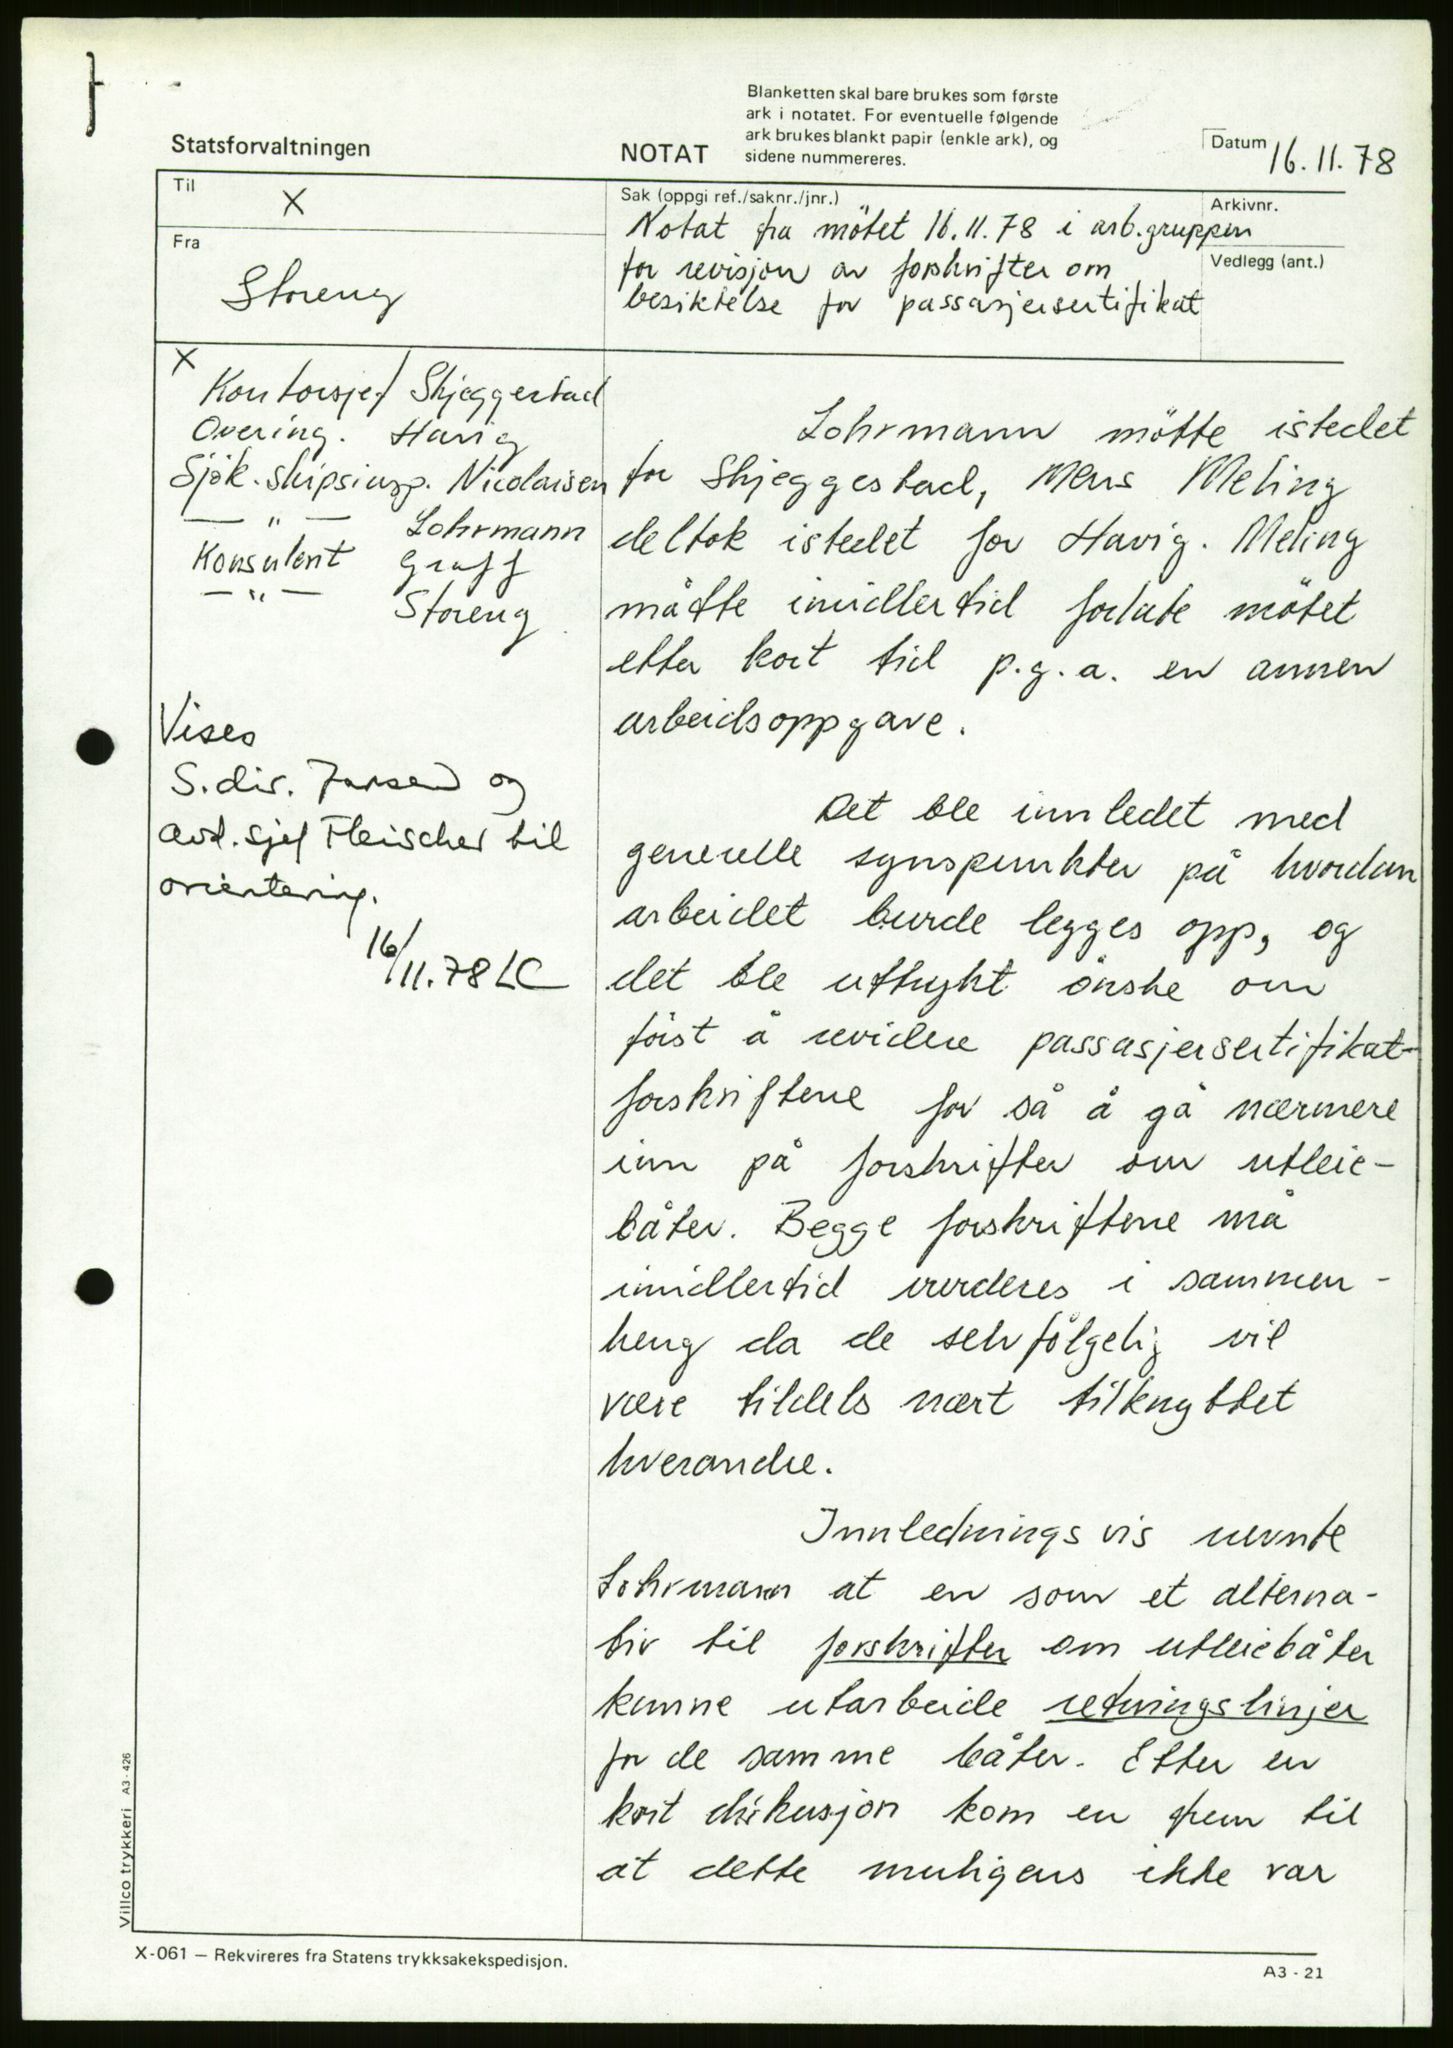 Blanketten skal bare brukes som første
ark i notatet. For eventuelle følgende
ark brukes blankt papir (enkle ark), og
sidene nummereres.
Statsforvaltningen
NOTAT
Datum 16.11.78
Til
X
Fra
Storeng
Sak (oppgi ref./saknr./jnr.)
Notat fra mötet 16.11.78 i arb.gruppen
for revisjon av forskrifter om
besiktelse for passasjersertifikat
Arkivnr.
Vedlegg (ant.)
X
Kontorsjef Skjeggestad
Overing. Havig
Sjök. skipsinsp. Nicolaisen
— " — Lohrmann
Konsulent Graff
— " — Storeng
Vises
S.dir. Jansen og
avd.sjef Fleischer til
orientering.
16/11.78 LC
Lohrmann mötte istedet
for Skjeggestad, mens Meling
deltok istedet for Havig. Meling
måtte imidlertid forlate mötet
etter kort tid p.g.a. en annen
arbeidsoppgave.
Det ble innledet med
generelle synspunkter på hvordan
arbeidet burde legges opp, og
det ble uttrykt önske om
först å revidere passasjersertifikat-
forskriftene for så å gå nærmere
inn på forskrifter om utleie-
båter. Begge forskriftene må
imidlertid vurderes i sammen-
heng da de selvfölgelig vil
være tildels nært tilknyttet
hverandre.
Innledningsvis nevnte
Lohrmann at en som et alterna-
tiv til forskrifter om utleiebåter
kunne utarbeide retningslinjer
for de samme båter. Etter en
kort diskusjon kom en frem til
at dette muligens ikke var
Villco trykkeri A3-426
X-061 — Rekvireres fra Statens trykksakekspedisjon.
A3-21